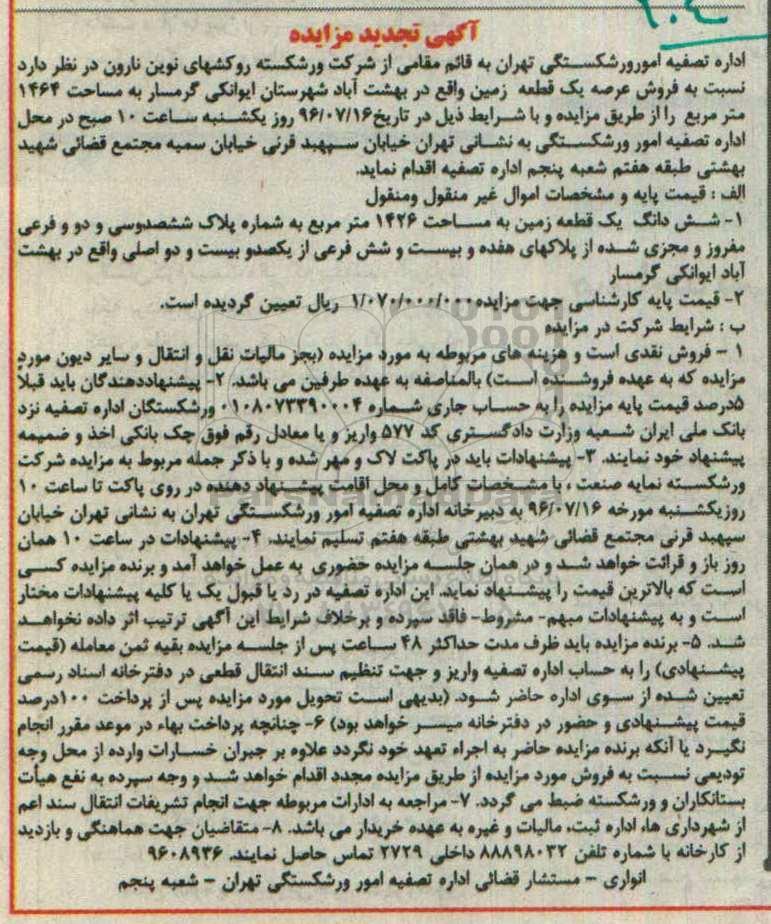 ۲۰۴
آگهی تجدید مزایده
اداره تصفیه امورورشکستگی تهران به قائم مقامی از شرکت ورشکسته روکشهای نوین نارون در نظر دارد
نسبت به فروش عرصه یک قطعه زمین واقع در بهشت آباد شهرستان ایوانکی گرمسار به مساحت ۱۴۶۴
متر مربع را از طریق مزایده و با شرایط ذیل در تاریخ۹۶/۰۷/۱۶ روز یکشنبه ساعت ۱۰ صبح در محل
اداره تصفیه امور ورشکستگی به نشانی تهران خیابان سپهبد قرنی خیابان سمیه مجتمع قضائی شهید
بهشتی طبقه هفتم شعبه پنجم اداره تصفیه اقدام نماید.
الف : قیمت پایه و مشخصات اموال غیر منقول ومنقول
۱- شش دانگ یک قطعه زمین به مساحت ۱۴۲۶ متر مربع به شماره پلاک ششصدوسی و دو و فرعی
مفروز و مجزی شده از پلاکهای هفده و بیست و شش فرعی از یکصدو بیست و دو اصلی واقع در بهشت
آباد ایوانکی گرمسار
۲- قیمت پایه کارشناسی جهت مزایده۱/۰۷۰/۰۰۰/۰۰۰ ریال تعیین گردیده است.
ب : شرایط شرکت در مزایده
۱ - فروش نقدی است و هزینه های مربوطه به مورد مزایده (بجز مالیات نقل و انتقال و سایر دیون مورد
مزایده که به عهده فروشنده است) بالمناصفه به عهده طرفین می باشد. ۲- پیشنهاددهندگان باید قبلاً
۵درصد قیمت پایه مزایده را به حساب جاری شماره ۰۱۰۸۰۷۳۳۹۰۰۰۴ ورشکستگان اداره تصفیه نزد
بانک ملی ایران شعبه وزارت دادگستری کد ۵۷۷ واریز و یا معادل رقم فوق چک بانکی اخذ و ضمیمه
پیشنهاد خود نمایند. ۳- پیشنهادات باید در پاکت لاک و مهر شده و با ذکر جمله مربوط به مزایده شرکت
ورشکسته نمایه صنعت ، با مشخصات کامل و محل اقامت پیشنهاد دهنده در روی پاکت تا ساعت ۱۰
روزیکشنبه مورخه ۹۶/۰۷/۱۶ به دبیرخانه اداره تصفیه امور ورشکستگی تهران به نشانی تهران خیابان
سپهبد قرنی مجتمع قضائی شهید بهشتی طبقه هفتم تسلیم نمایند. ۴- پیشنهادات در ساعت ۱۰ همان
روز باز و قرائت خواهد شد و در همان جلسه مزایده حضوری به عمل خواهد آمد و برنده مزایده کسی
است که بالاترین قیمت را پیشنهاد نماید. این اداره تصفیه در رد یا قبول یک یا کلیه پیشنهادات مختار
است و به پیشنهادات مبهم- مشروط- فاقد سپرده و برخلاف شرایط این آگهی ترتیب اثر داده نخواهد
شد. ۵- برنده مزایده باید ظرف مدت حداکثر ۴۸ ساعت پس از جلسه مزایده بقیه ثمن معامله (قیمت
پیشنهادی) را به حساب اداره تصفیه واریز و جهت تنظیم سند انتقال قطعی در دفترخانه اسناد رسمی
تعیین شده از سوی اداره حاضر شود. (بدیهی است تحویل مورد مزایده پس از پرداخت ۱۰۰درصد
قیمت پیشنهادی و حضور در دفترخانه میسر خواهد بود) ۶- چنانچه پرداخت بهاء در موعد مقرر انجام
نگیرد یا آنکه برنده مزایده حاضر به اجراء تعهد خود نگردد علاوه بر جبران خسارات وارده از محل وجه
تودیعی نسبت به فروش مورد مزایده از طریق مزایده مجدد اقدام خواهد شد و وجه سپرده به نفع هیأت
بستانکاران و ورشکسته ضبط می گردد. ۷- مراجعه به ادارات مربوطه جهت انجام تشریفات انتقال سند اعم
از شهرداری ها، اداره ثبت، مالیات و غیره به عهده خریدار می باشد. ۸- متقاضیان جهت هماهنگی و بازدید
از کارخانه با شماره تلفن ۸۸۸۹۸۰۳۲ داخلی ۲۷۲۹ تماس حاصل نمایند. ۹۶۰۸۹۳۶
انواری - مستشار قضائی اداره تصفیه امور ورشکستگی تهران - شعبه پنجم